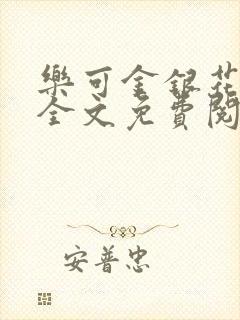 樂可金銀花
全文免費閱
安普忠